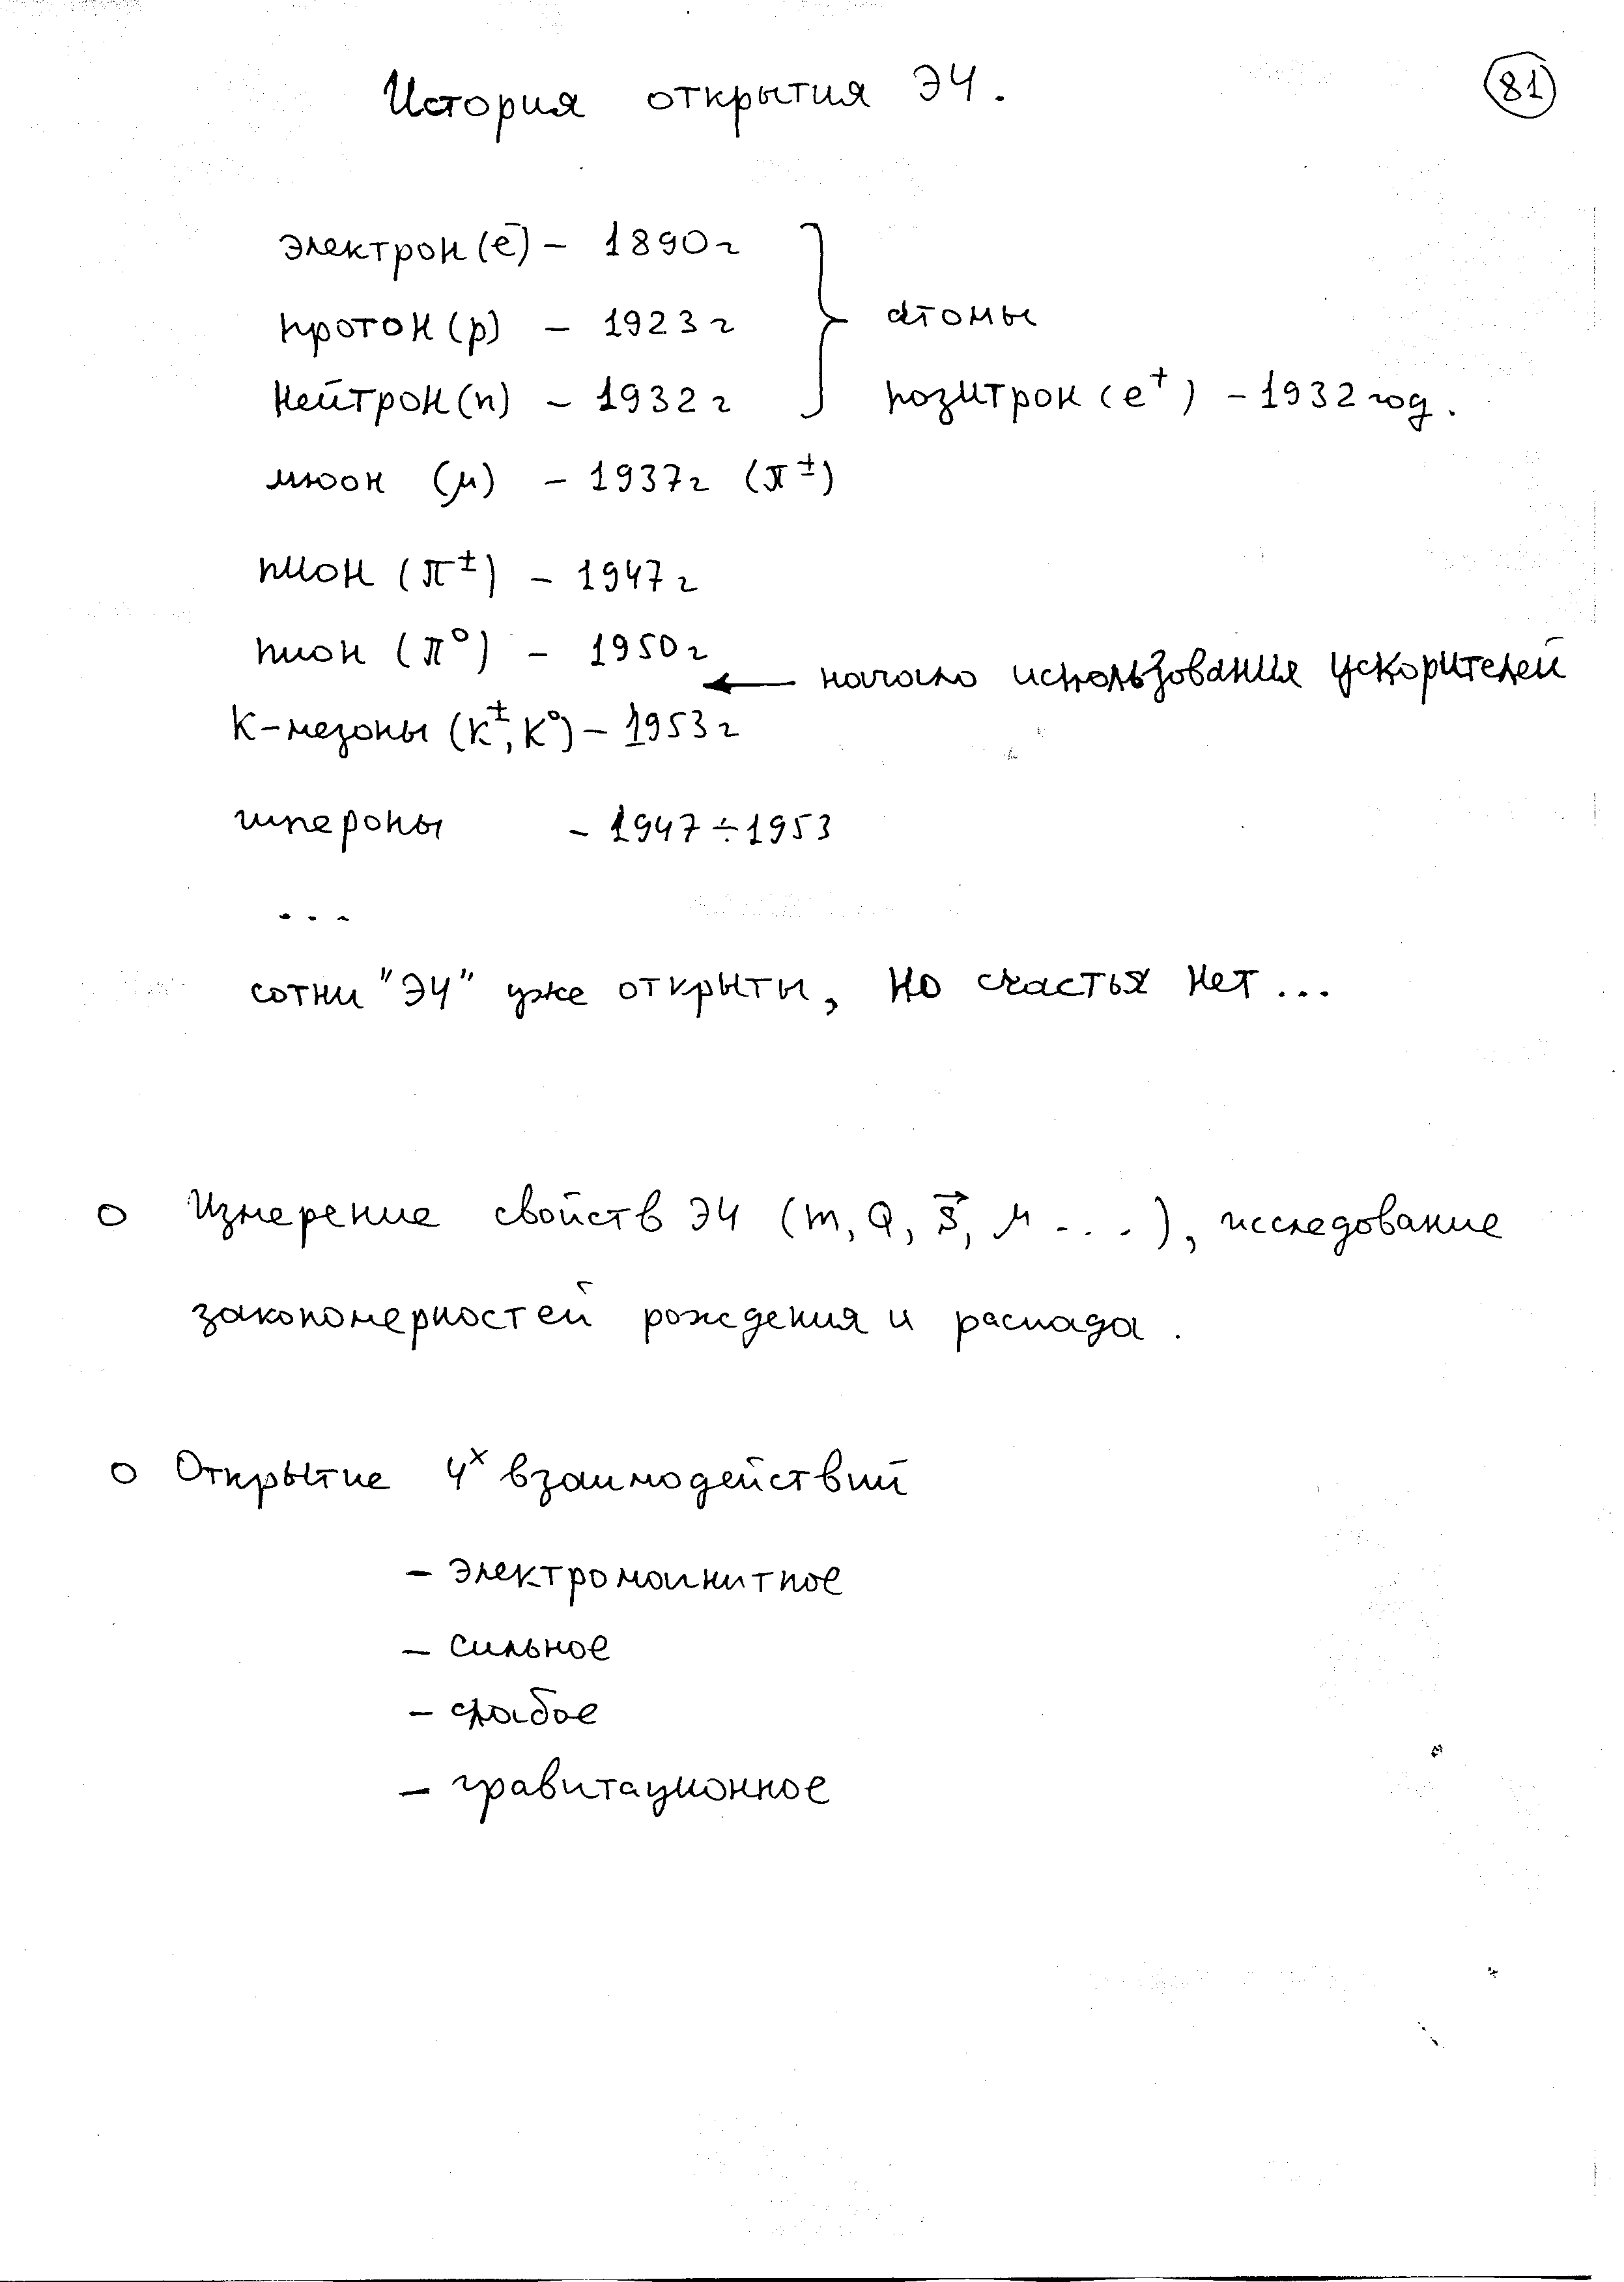 История открытия ЭЧ.
81
электрон (e⁻) – 1890г
протон (p) – 1923г
атомы
нейтрон (n) – 1932г
позитрон (e⁺) – 1932 год.
мюон (μ) – 1937г (π±)
пион (π±) – 1947г
пион (π⁰) – 1950г
← начало использования ускорителей
К-мезоны (K±, K⁰) – 1953г
гипероны – 1947÷1953
...
сотни "ЭЧ" уже открыты, но счастья нет...
○ Измерение свойств ЭЧ (m, Q, s⃗, μ ...), исследование
закономерностей рождения и распада.
○ Открытие 4ˣ взаимодействий
– электромагнитное
– сильное
– слабое
– гравитационное